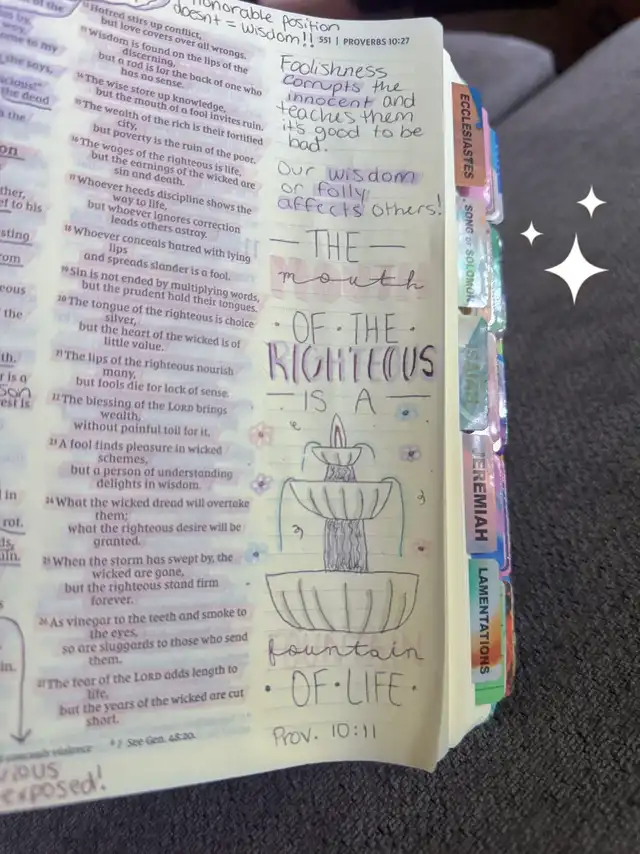 honorable position
doesnt = wisdom!!
551 | PROVERBS 10:27
ther,
sting
rom
eous
the
th.
r is a
in
rot.
in.
12 Hatred stirs up conflict,
but love covers over all wrongs.
13 Wisdom is found on the lips of the
discerning,
but a rod is for the back of one who
has no sense.
14 The wise store up knowledge,
but the mouth of a fool invites ruin.
15 The wealth of the rich is their fortified
city,
but poverty is the ruin of the poor.
16 The wages of the righteous is life,
but the earnings of the wicked are
sin and death.
17 Whoever heeds discipline shows the
way to life,
but whoever ignores correction
leads others astray.
18 Whoever conceals hatred with lying
lips
and spreads slander is a fool.
19 Sin is not ended by multiplying words,
but the prudent hold their tongues.
20 The tongue of the righteous is choice
silver,
but the heart of the wicked is of
little value.
21 The lips of the righteous nourish
many,
but fools die for lack of sense.
22 The blessing of the LORD brings
wealth,
without painful toil for it.
23 A fool finds pleasure in wicked
schemes,
but a person of understanding
delights in wisdom.
24 What the wicked dread will overtake
them;
what the righteous desire will be
granted.
25 When the storm has swept by, the
wicked are gone,
but the righteous stand firm
forever.
26 As vinegar to the teeth and smoke to
the eyes,
so are sluggards to those who send
them.
27 The fear of the LORD adds length to
life,
but the years of the wicked are cut
short.
conceals violence
See Gen. 48:20.
exposed!
Foolishness
corrupts the
innocent and
teaches them
it's good to be
bad.
Our wisdom
or folly
affects others!
— THE —
mouth
· OF · THE ·
RIGHTEOUS
— IS A —
fountain
· OF · LIFE ·
Prov. 10:11
ECCLESIASTES
SONG OF SOLOMON
ISAIAH
JEREMIAH
LAMENTATIONS